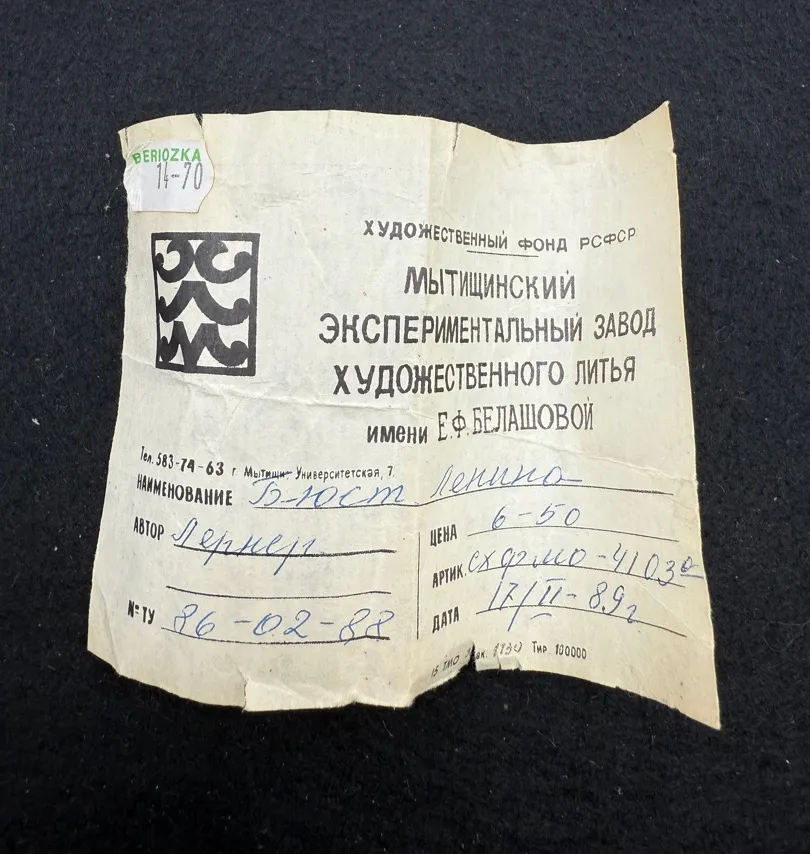 BERIOZKA
14-70
ХУДОЖЕСТВЕННЫЙ ФОНД РСФСР
МЫТИЩИНСКИЙ
ЭКСПЕРИМЕНТАЛЬНЫЙ ЗАВОД
ХУДОЖЕСТВЕННОГО ЛИТЬЯ
имени Е.Ф.БЕЛАШОВОЙ
Тел. 583-74-63 г. Мытищи Университетская, 7.
НАИМЕНОВАНИЕ Бюст Ленина
АВТОР Лернер
ЦЕНА 6-50
АРТИК. СХ фмо-4103
№ ТУ 86-02-88
ДАТА 17/II-89г
ТИО Зак. Тир. 100000